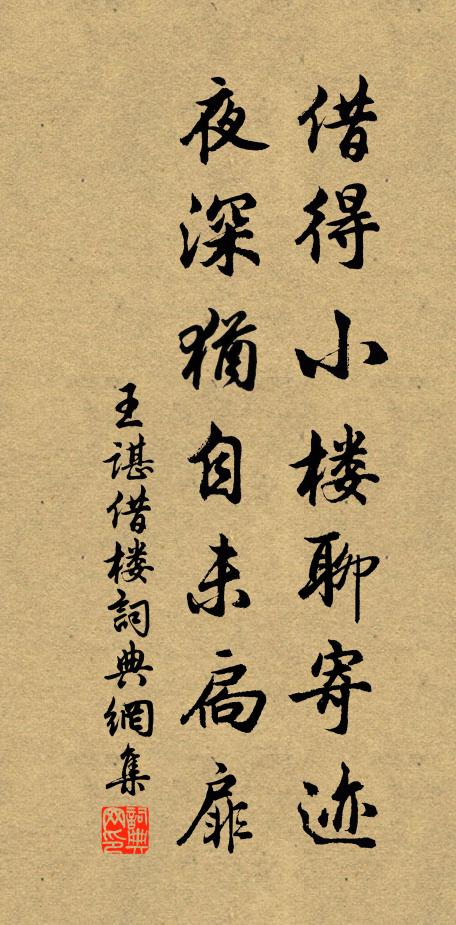 借得小楼聊寄迹
夜深犹自未扃扉
王谌借楼詞典網集
詞典网印